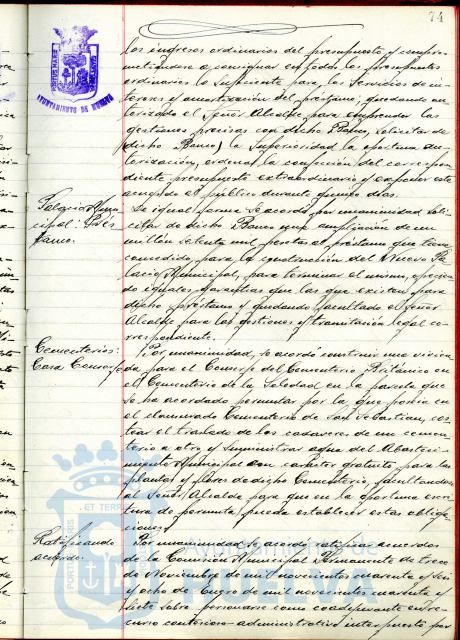 74
AYUNTAMIENTO DE HUELVA
los ingresos ordinarios del presupuesto y compro-
metiéndose a consignar en todos los presupuestos
ordinarios lo suficiente para los servicios de in-
tereses y amortización del préstamo; quedando au-
torizado el Señor Alcalde para emprender las
gestiones precisas con dicho Banco, solicitar de
la Superioridad la oportuna au-
torización, ordenar la confección del correspon-
diente presupuesto extraordinario y exponer este
acuerdo al público durante quince días.
Palacio Muni-
cipal: Prés-
tamo.
De igual forma se acordó por unanimidad soli-
citar de dicho Banco una ampliación de un
millón setenta mil pesetas al préstamo que tiene
concedido, para la construcción del Nuevo Pa-
lacio Municipal, para terminar el mismo, ofrecien-
do iguales garantías que las que existen para
dicho préstamo y quedando facultado el Señor
Alcalde para las gestiones y tramitación legal co-
rrespondiente.
Cementerios:
Casa Conserje
Por unanimidad, se acordó construir una vivien-
da para el Conserje del Cementerio Británico en
el Cementerio de la Soledad en la parcela que
se ha acordado permutar por la que poseía en
el clausurado Cementerio de San Sebastian, cos-
tear el traslado de los cadaveres de un cemen-
terio a otro y suministrar agua del Abasteci-
miento Municipal con carácter gratuito para las
plantas y flores de dicho Cementerio, facultandose
al Señor Alcalde para que en la oportuna escri-
tura de permuta, pueda establecer estas obliga-
ciones.
Ratificando
acuerdo.
Por unanimidad se acordó ratificar acuerdos
de la Comisión Municipal Permanente de trece
de Noviembre de mil novecientos cuarenta y seis
y ocho de Enero de mil novecientos cuarenta y
siete sobre personarse como coadyuvante en re-
curso contencioso-administrativo interpuesto por
Ayuntamiento de